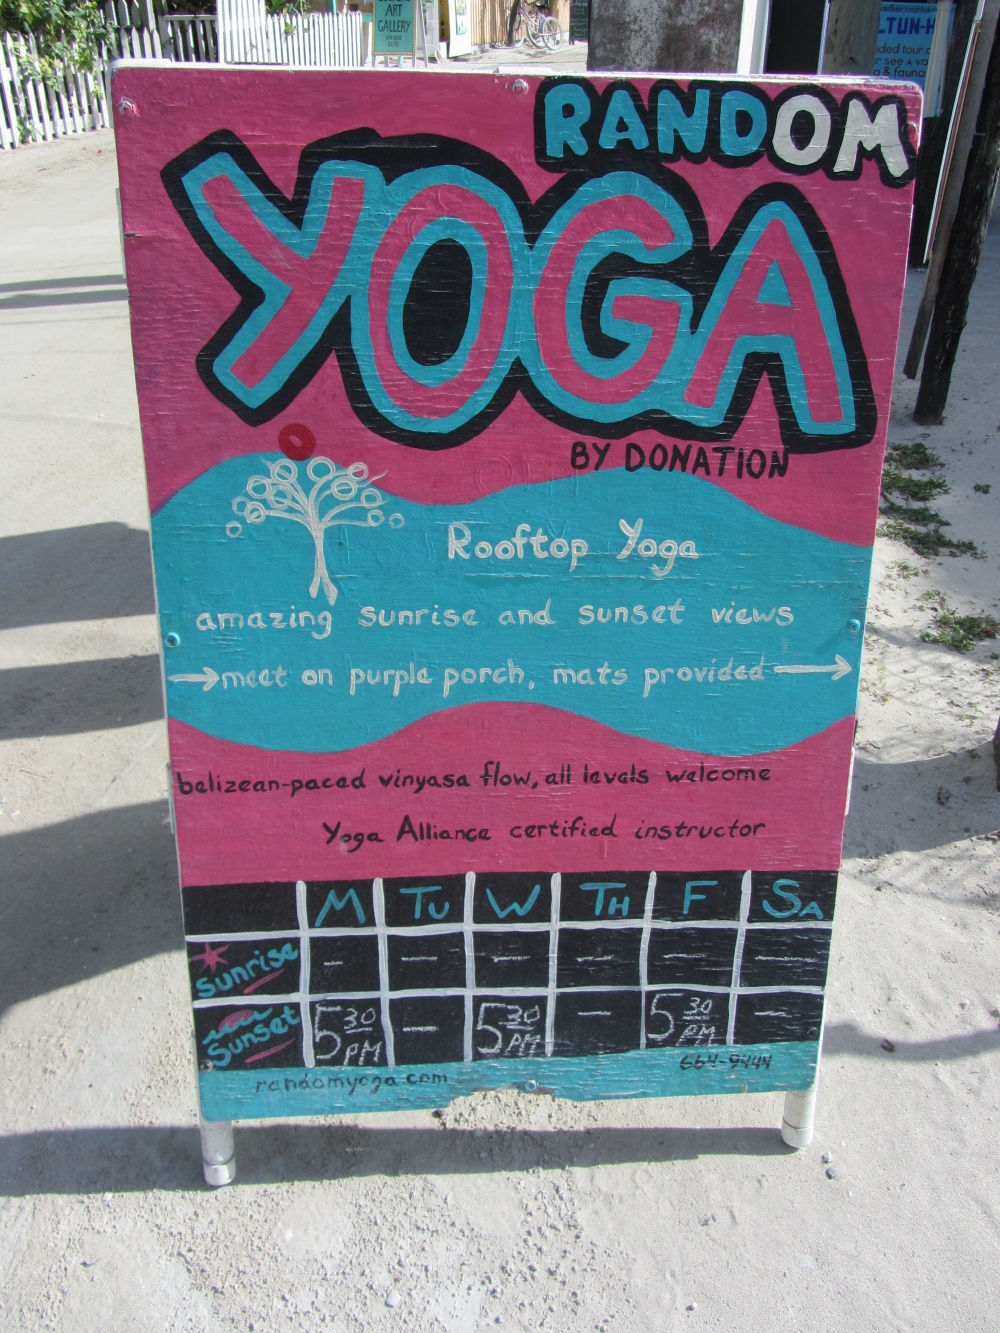 ART
GALLERY
LTUN-H
ided tour
see a va
& fauna
RANDOM
YOGA
BY DONATION
Rooftop Yoga
amazing sunrise and sunset views
→meet on purple porch, mats provided→
belizean-paced vinyasa flow, all levels welcome
Yoga Alliance certified instructor
M TU W TH F SA
Sunrise - - - - - -
Sunset 530 PM - 530 PM - 530 PM -
randomyoga.com 664-9444